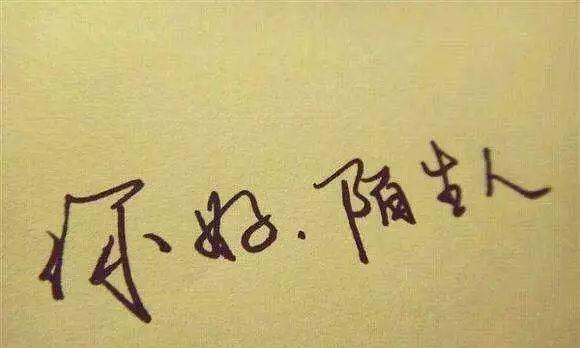 你好.陌生人